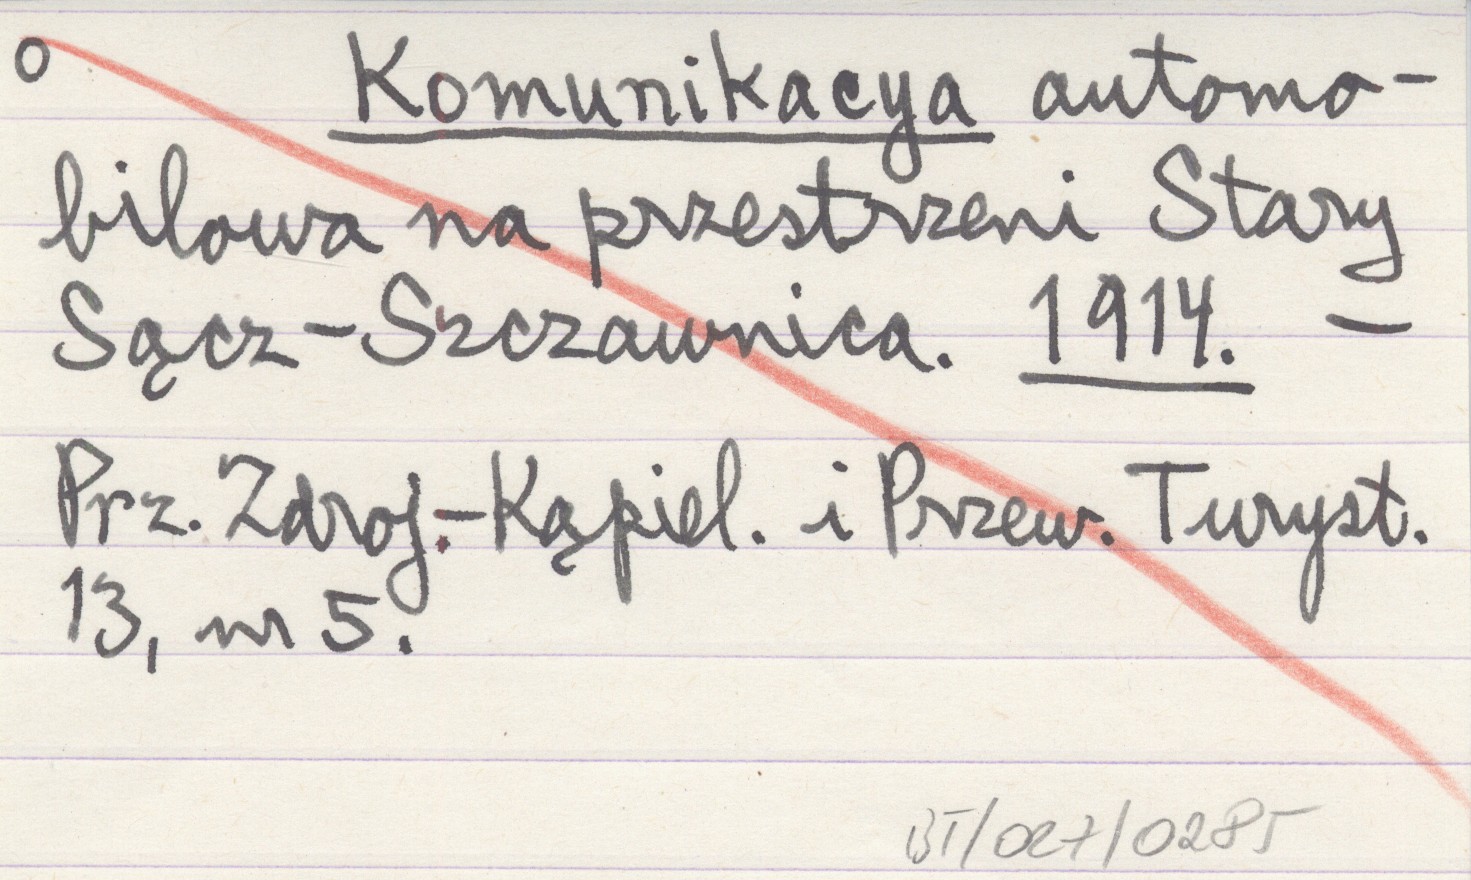 o Komunikacya automo-
bilowa na przestrzeni Stary
Sącz-Szczawnica. 1914. —
Prz. Zdroj.-Kąpiel. i Przew. Turyst.
13, nr 5.
BT/027/0285